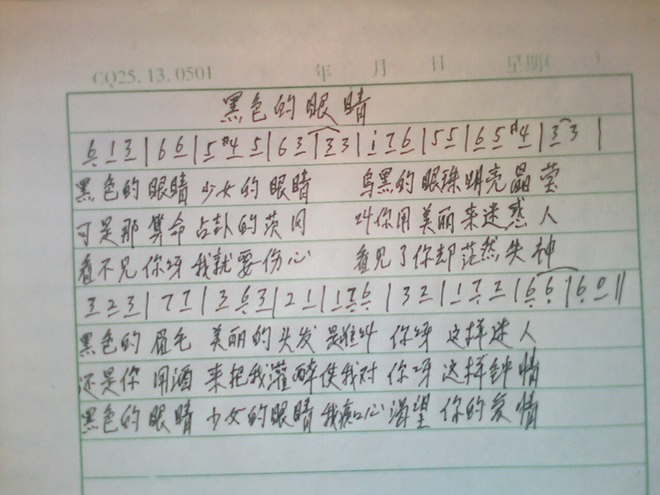 CQ25.13.0501 年 月 日 星期( )
黑色的眼睛
6 1 3 | 6 6 | 5 #4 5 | 6 3 | 3 3 | i 7 6 | 5 5 | 6 5 #4 | 3 3 |
黑色的眼睛 少女的眼睛 乌黑的眼珠明亮晶莹
可是那算命占卦的茨冈 叫你用美丽来迷惑人
看不见你呀我就要伤心 看见了你却茫然失神
3 2 3 | 7 7 | 3 6 3 | 2 1 | 1 7 6 | 3 2 | 1 7 2 | 6 6 | 6 0 ||
黑色的眉毛 美丽的头发 是谁叫你呀这样迷人
还是你用酒来把我灌醉使我对你呀这样钟情
黑色的眼睛 少女的眼睛我痴心渴望你的爱情